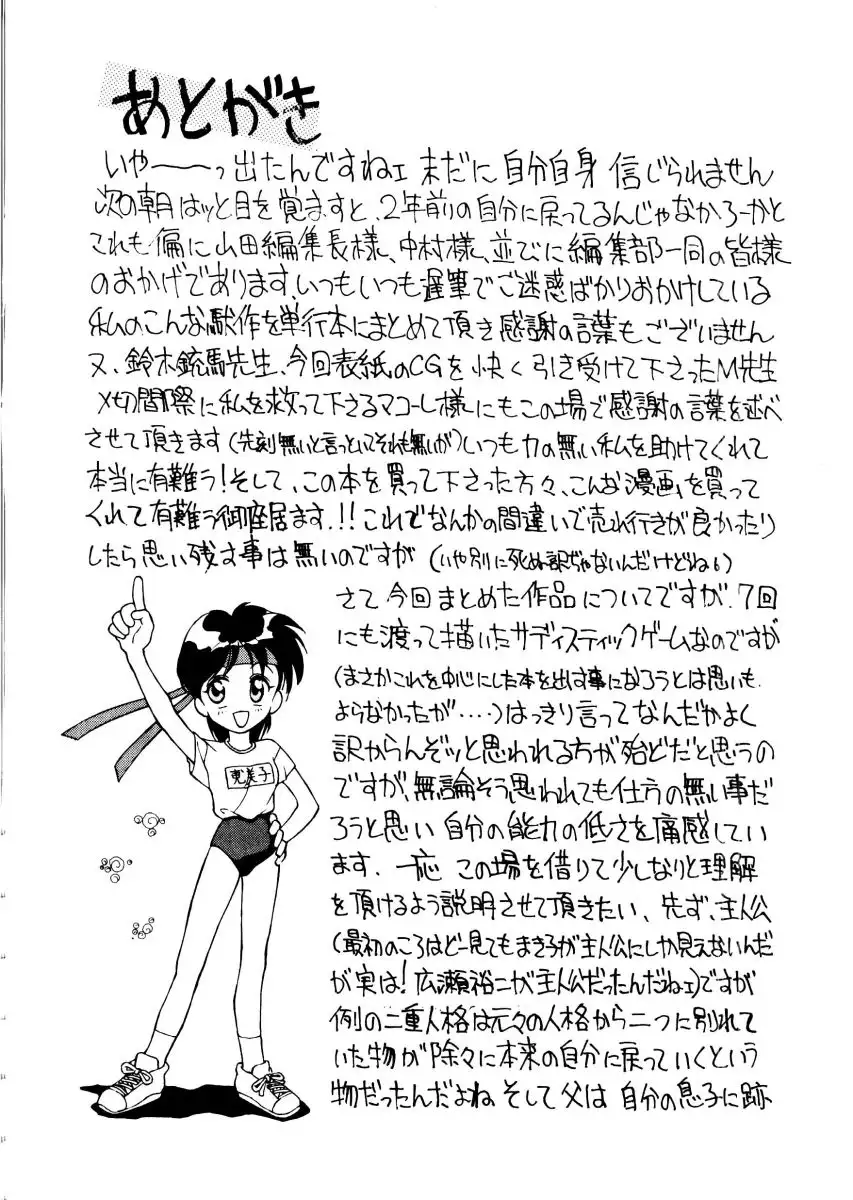 あとがき
いやーーっ出たんですねェ 未だに自分自身 信じられません
次の朝ハッと目を覚ますと、2年前の自分に戻ってるんじゃなかろーかと
これも偏に山田編集長様、中村様、並びに編集部一同の皆様
のおかげであります、いつもいつも遅筆でご迷惑ばかりおかけしている
私のこんな駄作を単行本にまとめて頂き感謝の言葉もございません
又、鈴木銃馬先生、今回表紙のCGを快く引き受けて下さったM先生
〆切間際に私を救って下さるマコーレ様にもこの場で感謝の言葉を述べ
させて頂きます(先刻無いと言っといてそれも無いが)いつも力の無い私を助けてくれて
本当に有難う!そして、この本を買って下さった方々、こんな漫画を買って
くれて有難う御座居ます.!!これでなんかの間違いで売れ行きが良かったり
したら思い残す事は無いのですが(いや別に死ぬ訳ぢゃないんだけどね。)
さて今回まとめた作品についてですが、7回
にも渡って描いたサディスティックゲームなのですが
(まさかこれを中心にした本を出す事になろうとは思いも
よらなかったが・・・・)はっきり言ってなんだかよく
訳からんぞッと思われる方が殆どだと思うの
ですが、無論そう思われても仕方の無い事だ
ろうと思い 自分の能力の低さを痛感してい
ます. 一応 この場を借りて少しなりと理解
を頂けるよう説明させて頂きたい、先ず、主人公
(最初のころはどー見てもまき子が主人公にしか見えないんだ
が実は!広瀬裕二が主人公だったんだねェ)ですが
例の二重人格は元々の人格から二つに別れて
いた物が除々に本来の自分に戻っていくという
物だったんだよね そして父は 自分の息子に跡
恵美子